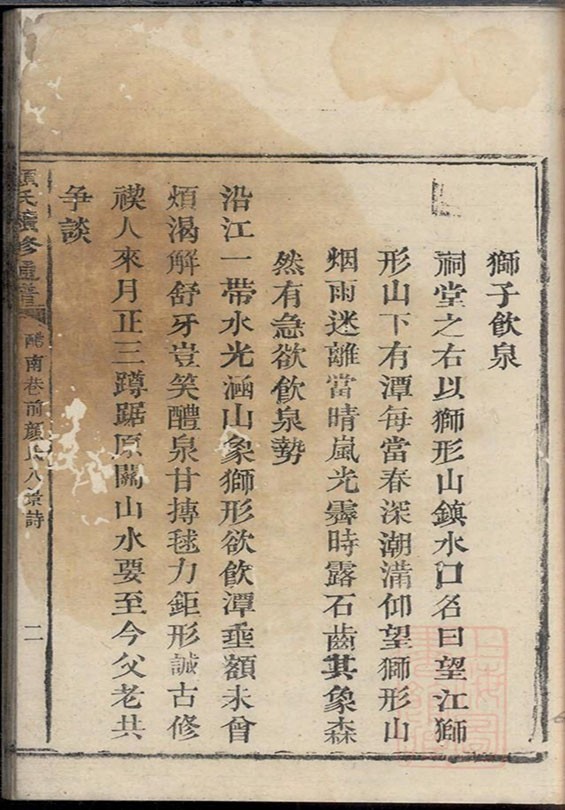 獅子飲泉
祠堂之右以獅形山鎮水口名曰望江獅
形山下有潭每當春深潮滿仰望獅形山
烟雨迷離當晴嵐光霽時露石齒其象森
然有急欲飲泉勢
沿江一帶水光涵山象獅形欲飲潭垂額未曾
煩渴解舒牙豈笑醴泉甘摶毬力鉅形誠古修
禊人來月正三蹲踞原關山水要至今父老共
争談
氏續修通譜
南巷前顏氏八景詩
二